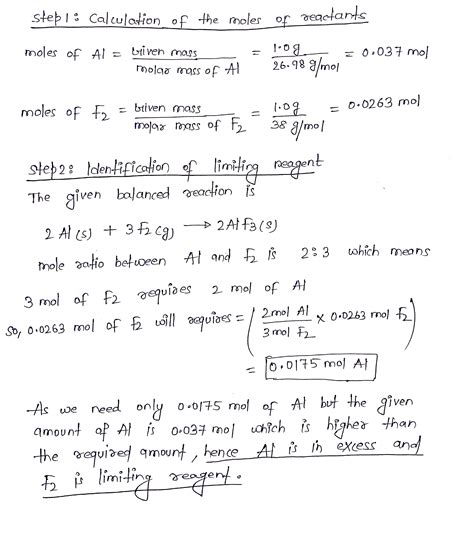 Step 1: Calculation of the moles of reactants
moles of Al = Given mass / molar mass of Al = 1.0g / 26.98 g/mol = 0.037 mol
moles of F2 = Given mass / molar mass of F2 = 1.0g / 38 g/mol = 0.0263 mol
Step2: Identification of limiting reagent
The given balanced reaction is
2 Al (s) + 3 F2 (g) → 2 AlF3 (s)
mole ratio between Al and F2 is 2:3 which means
3 mol of F2 requires 2 mol of Al
So, 0.0263 mol of F2 will requires = (2 mol Al / 3 mol F2 × 0.0263 mol F2)
= 0.0175 mol Al
As we need only 0.0175 mol of Al but the given
amount of Al is 0.037 mol which is higher than
the required amount, hence Al is in excess and
F2 is limiting reagent.